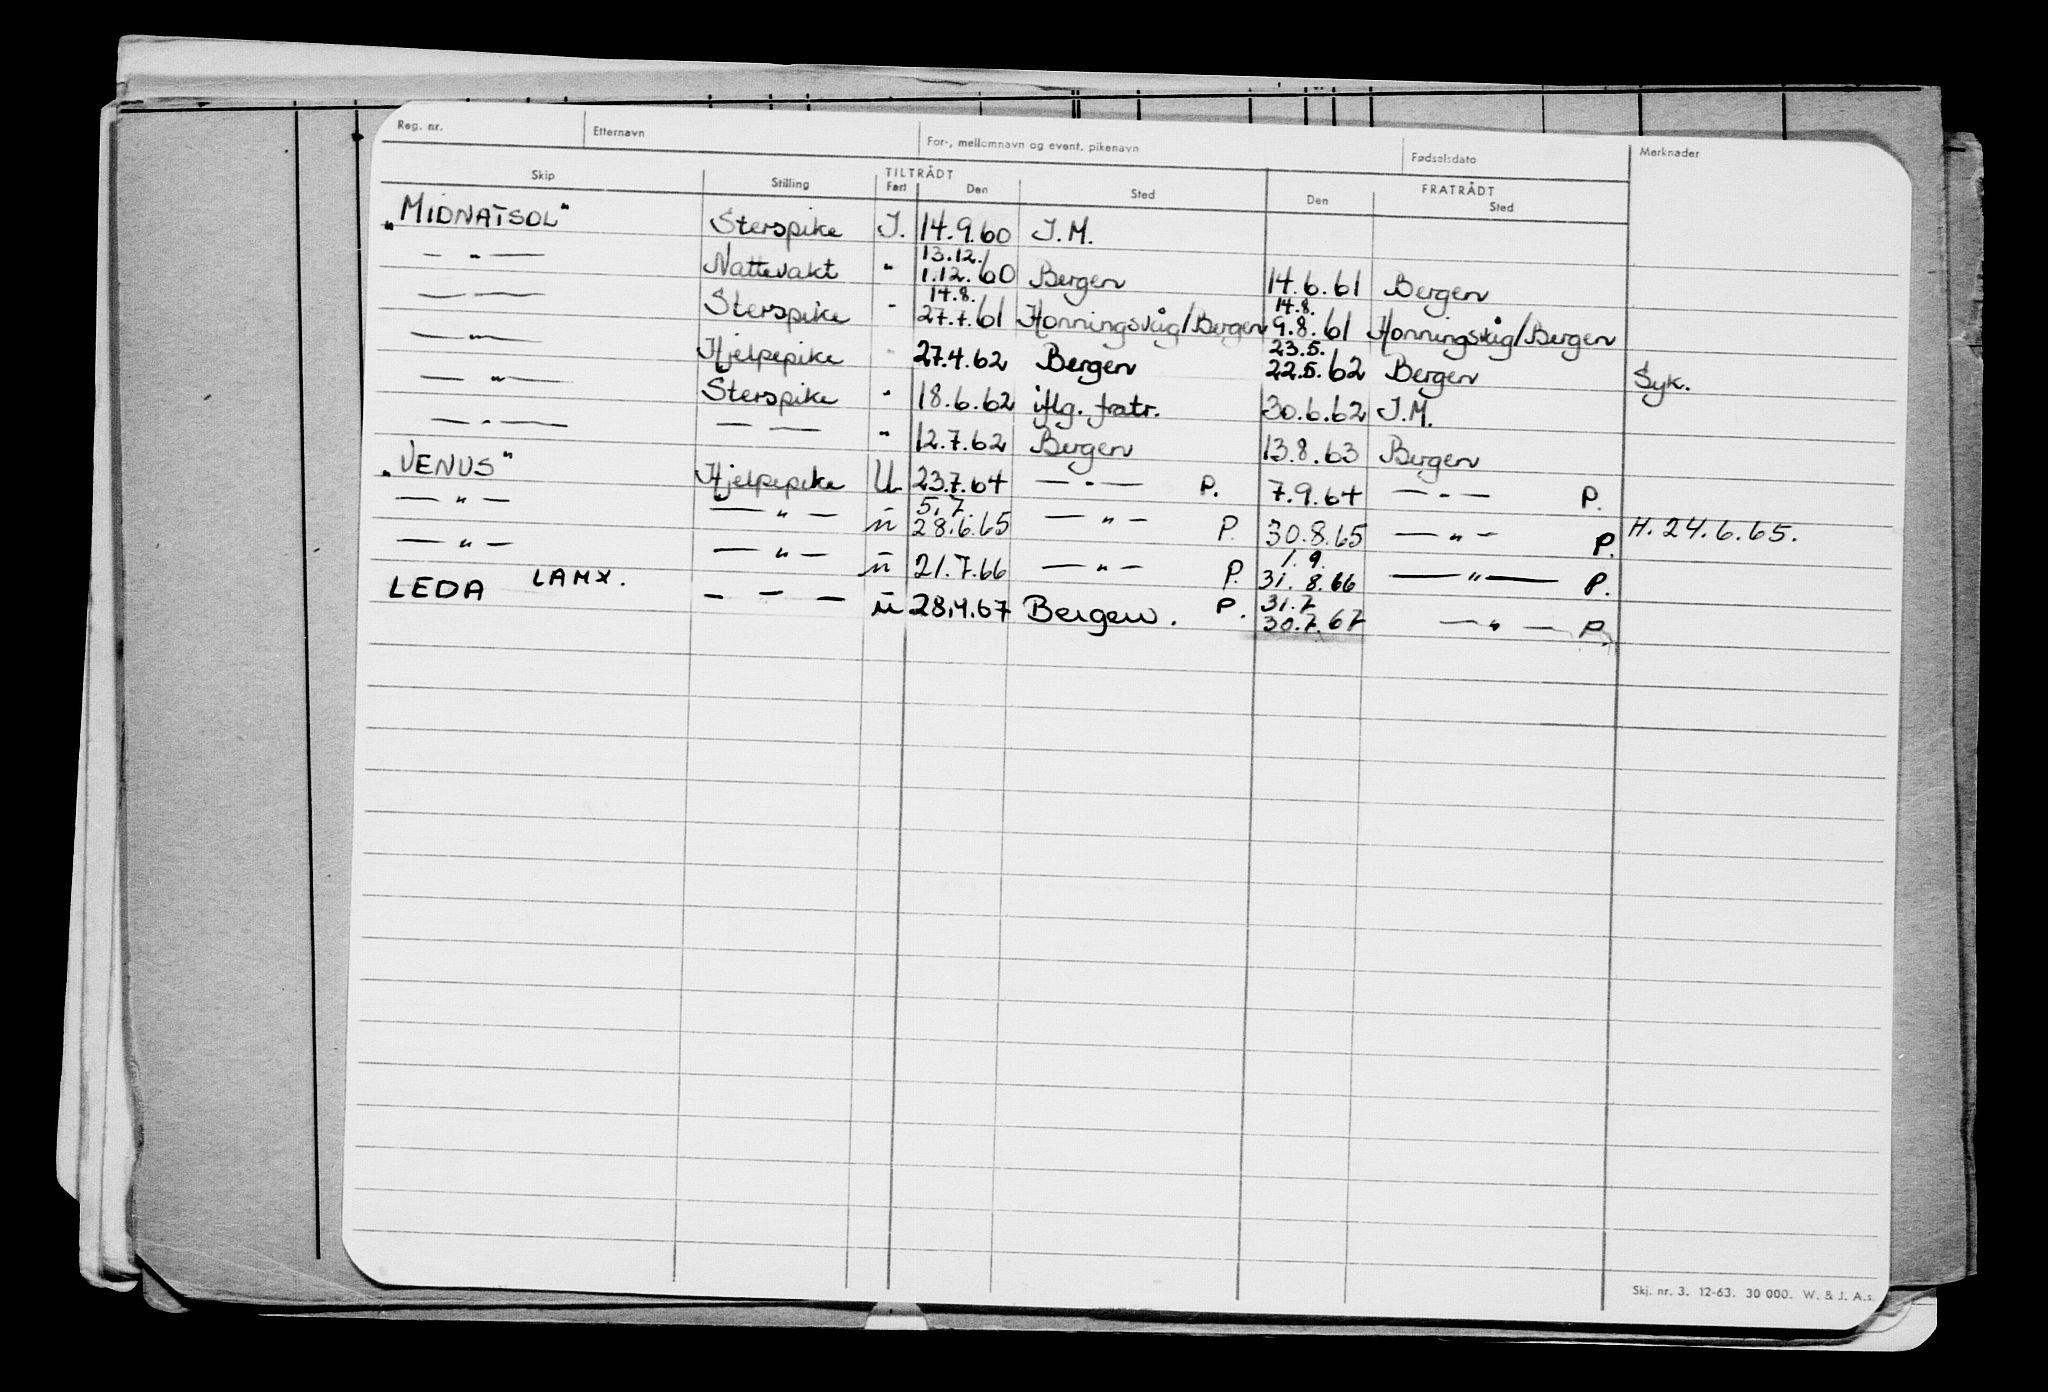 Reg. nr. Etternavn For-, mellomnavn og event. pikenavn Fødselsdato Merknader
TILTRÅDT FRATRÅDT
Skip Stilling Fart Den Sted Den Sted
"MIDNATSOL" Sterspike I. 14.9.60 I.M.
— " — Nattevakt " 13.12./1.12.60 Bergen 14.6.61 Bergen
— " — Sterspike " 14.8. 27.7.61 Honningsvåg/Bergen 14.8. 9.8.61 Honningsvåg/Bergen
— " — Hjelpepike " 27.4.62 Bergen 23.5. 22.5.62 Bergen Syk.
— " — Sterspike " 18.6.62 iflg. fratr. 30.6.62 I.M.
— " — — — " 12.7.62 Bergen 13.8.63 Bergen
"VENUS" Hjelpepike U 23.7.64 — " — P. 7.9.64 — " — P.
— " — — " — u 5.7. 28.6.65 — " — P. 30.8.65 — " — P. H. 24.6.65.
— " — — " — u 21.7.66 — " — P. 1.9. 31.8.66 — " — P.
LEDA LAMX. — — — u 28.4.67 Bergen. P. 31.7 30.7.67 — " — P.
Skj. nr. 3. 12-63. 30 000. W. & J. A.s.